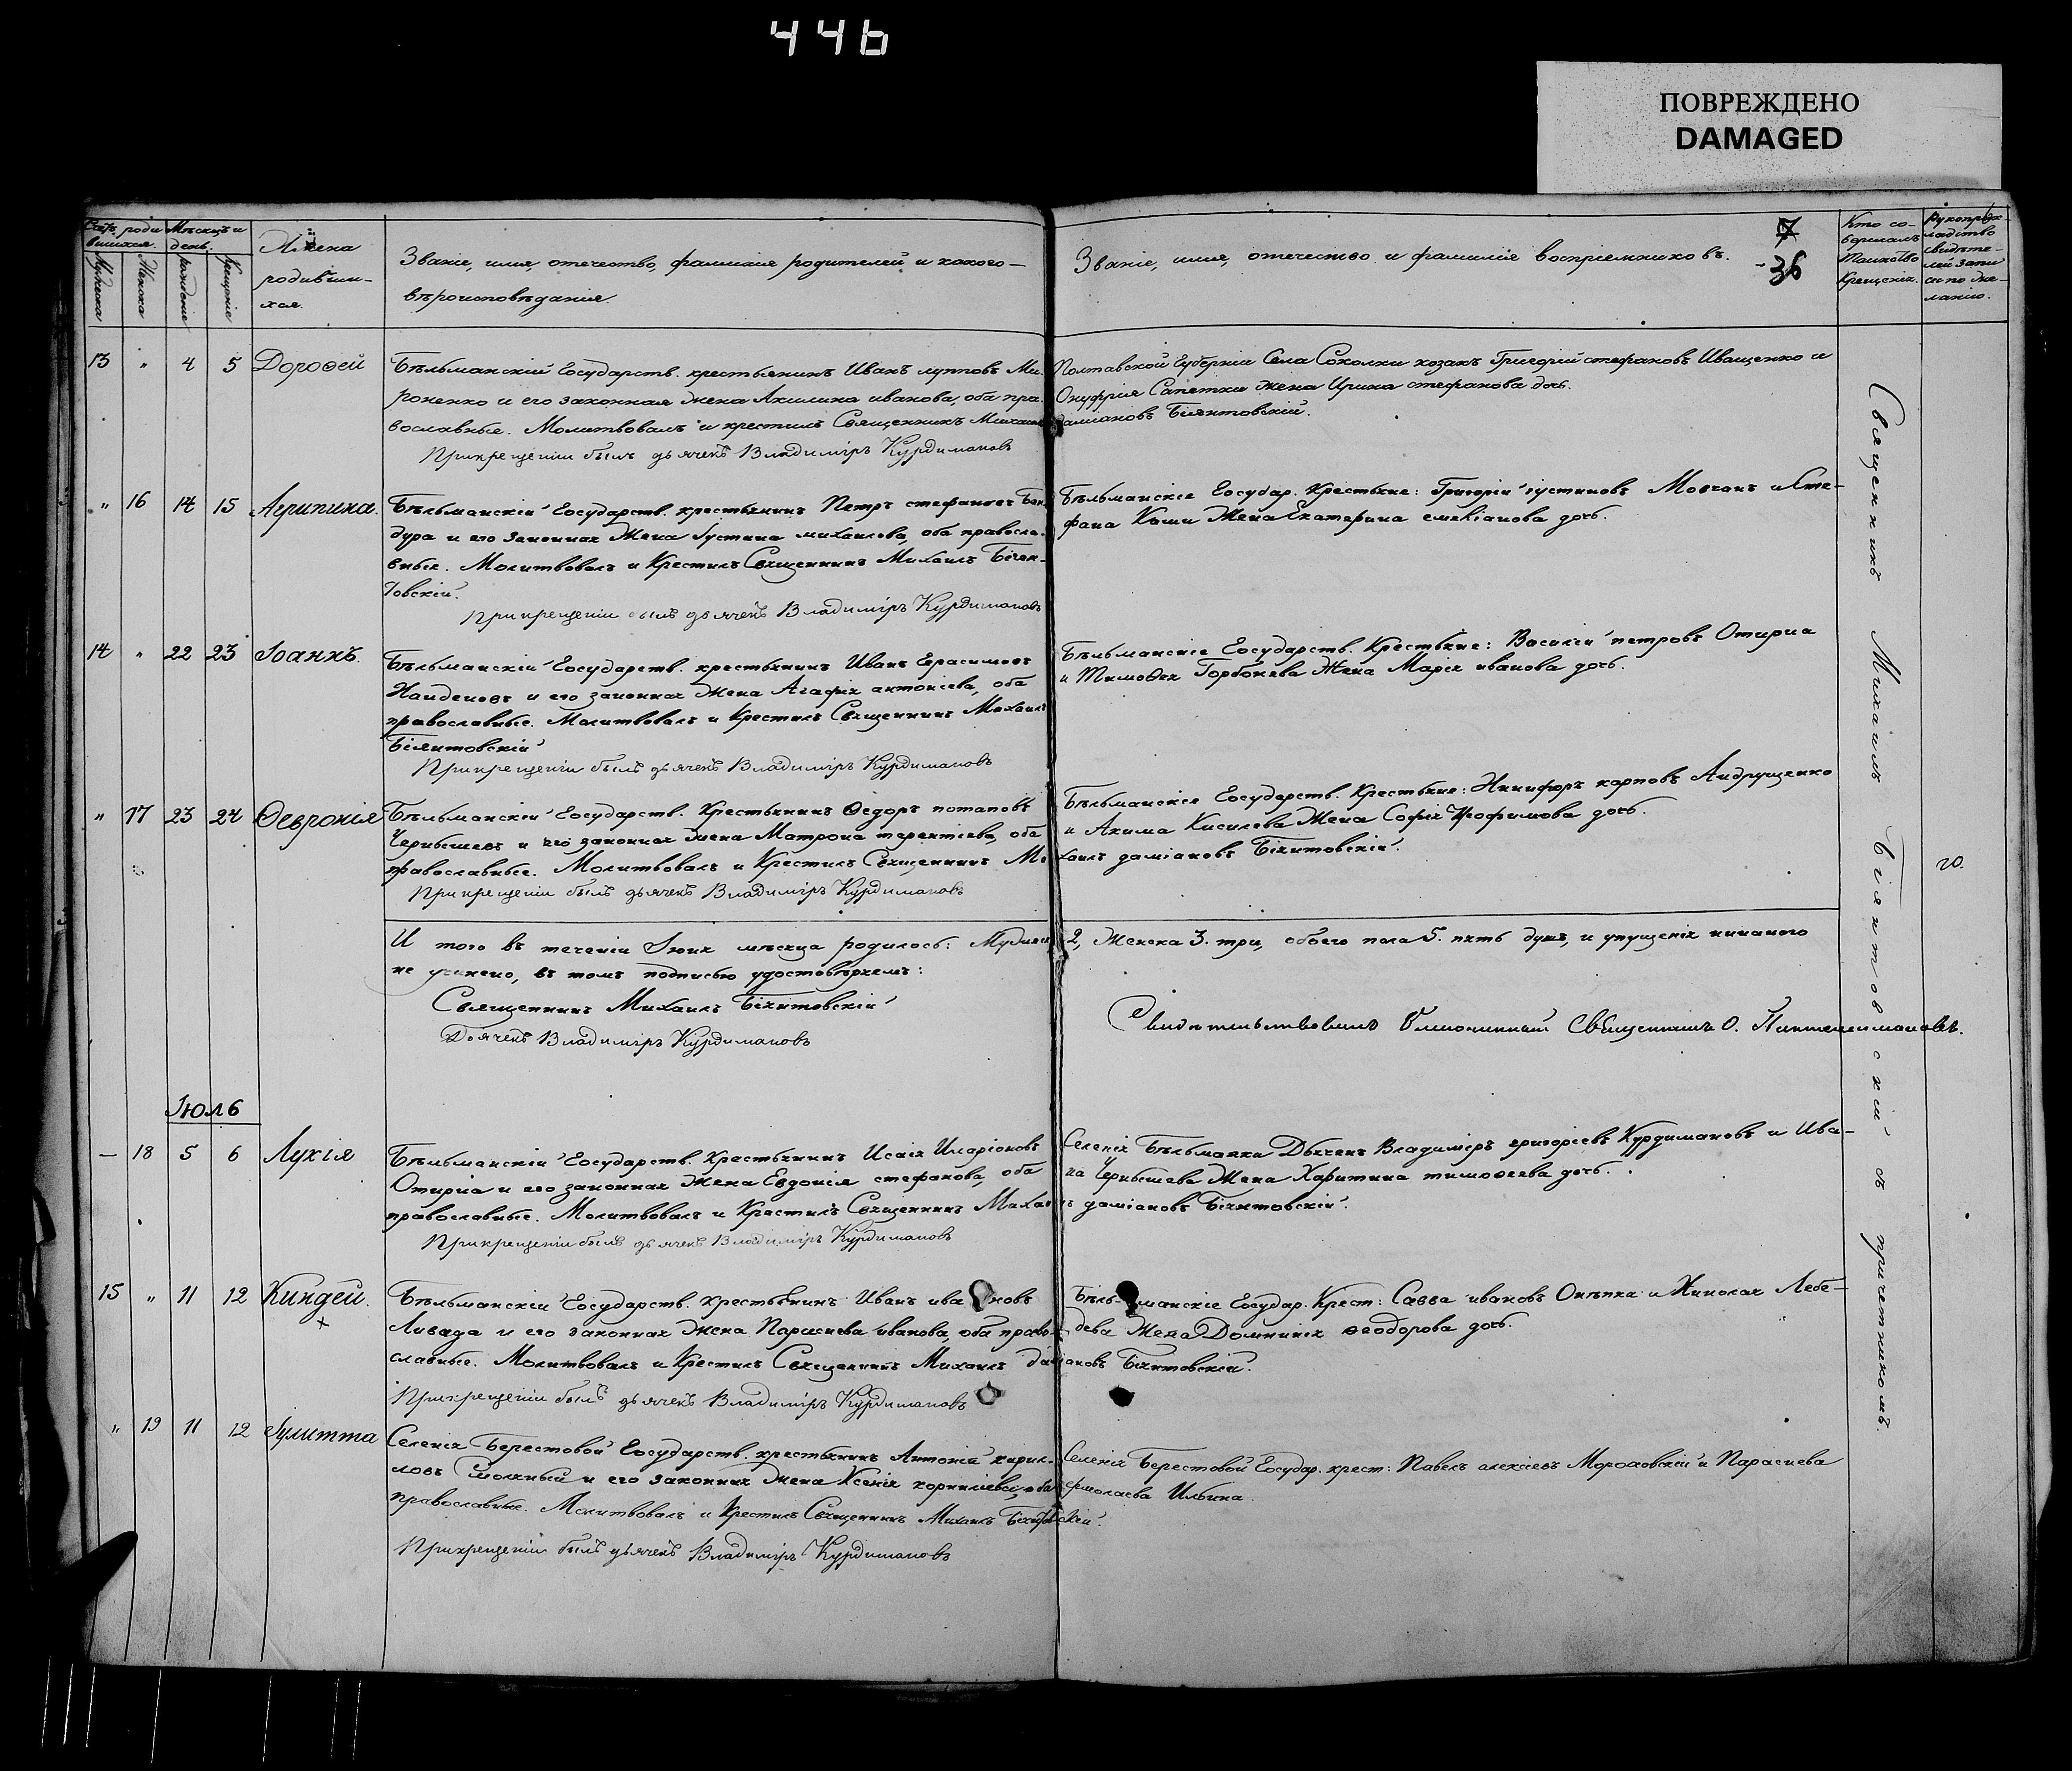 446
ПОВРЕЖДЕНО
DAMAGED
7
36
Счетъ родившихся. Мѣсяцъ и день. Имена родившихся.
Мужеска Женска рожденіе Крещеніе
Званіе, имя, отечество, фамилія родителей и какого вѣроисповѣданія.
Званіе, имя, отечество и фамилія воспріемниковъ.
Кто совершалъ таинство крещенія.
Рукоприкладство свидѣтелей записи по желанію.
13 " 4 5 Дороѳей
Бѣльманскій Государств. крестьянинъ Иванъ лупповъ Ми-
роненко и его законная жена Акилина иванова, оба пра-
вославные. Молитвовалъ и крестилъ Священникъ Михаилъ
даміановъ Біянтовскій.
Прикрещеніи былъ дьячекъ Владиміръ Курдимановъ
Полтавской Губерніи Села Соколки козакъ Григорій стефановъ Иващенко и
Онуфрія Сапетки жена Ирина стефанова дочь.
" 16 14 15 Агрипина.
Бѣльманскій Государств. крестьянинъ Петръ стефановъ Бан-
дура и его законная жена Іустина михаилова, оба правосла-
вные. Молитвовалъ и Крестилъ Священникъ Михаилъ Біян-
товскій.
Прикрещеніи былъ дьячекъ Владиміръ Курдимановъ
Бѣльманскіе Государ. Крестьяне: Григорій іустиновъ Мовчанъ и Сте-
фана Каши Жена Екатерина емеліанова дочь.
14 " 22 23 Іоаннъ.
Бѣльманскій Государств. крестьянинъ Иванъ Герасимовъ
Найденовъ и его законная жена Агафія антоніева, оба
православные. Молитвовалъ и Крестилъ Священникъ Михаилъ
Біянтовскій
Прикрещеніи былъ дьячекъ Владиміръ Курдимановъ
Бѣльманскіе Государств. Крестьяне: Василій петровъ Отириа
и Тимоѳея Горбонева Жена Марія иванова дочь.
" 17 23 24 Ѳевронія
Бѣльманскій Государств. Крестьянинъ Ѳедоръ потаповъ
Чернышевъ и его законная жена Матрона терентіева, оба
православные. Молитвовалъ и Крестилъ Священникъ Ми-
хаилъ даміановъ Біянтовскій.
Прикрещеніи былъ дьячекъ Владиміръ Курдимановъ
Бѣльманскіе Государств. Крестьяне: Никифоръ карповъ Андрущенко
и Акима Киселева Жена Софія трофимова дочь.
И того въ теченіи Іюня мѣсяца родилось: Мужеска 2, Женска 3. три, обоего пола 5. пять душъ, и упущенія никакого
не учинено, въ томъ подписью удостовѣряемъ:
Священникъ Михаилъ Біянтовскій
Дьячекъ Владиміръ Курдимановъ
Свидетельствовалъ Благочинный Священникъ О. Пантелеимоновъ.
Іюль
— 18 5 6 Лукія
Бѣльманскій Государств. Крестьянинъ Исаія Иларіоновъ
Отириа и его законная жена Евдокія стефанова, оба
православные. Молитвовалъ и Крестилъ Священникъ Михаилъ
даміановъ Біянтовскій.
Прикрещеніи былъ дьячекъ Владиміръ Курдимановъ
Селенія Бѣльманки Дьячекъ Владиміръ григоріевъ Курдимановъ и Ива-
на Чернышева Жена Харитина тимоѳеева дочь.
15 " 11 12 Киндей.
Бѣльманскій Государств. крестьянинъ Иванъ ивановъ
Ливада и его законная жена Параскева иванова, оба право-
славные. Молитвовалъ и Крестилъ Священникъ Михаилъ даміановъ Біянтовскій.
Прикрещеніи былъ дьячекъ Владиміръ Курдимановъ
Бѣльманскіе Государ. Крест: Савва ивановъ и Николая Лебе-
дева Жена Домникія ѳеодорова дочь.
" 19 11 12 Іулитта
Селенія Берестовой Государств. крестьянинъ Антоній кирил-
ловъ и его законная жена Ксенія корниліева, оба
православные. Молитвовалъ и Крестилъ Священникъ Михаилъ Біянтовскій.
Прикрещеніи былъ дьячекъ Владиміръ Курдимановъ
Селенія Берестовой Государ. крест: Павелъ алексіевъ Мороховскій и Параскева
ермолаева Ильина.
Священникъ Михаилъ Біянтовскій съ причетникомъ.